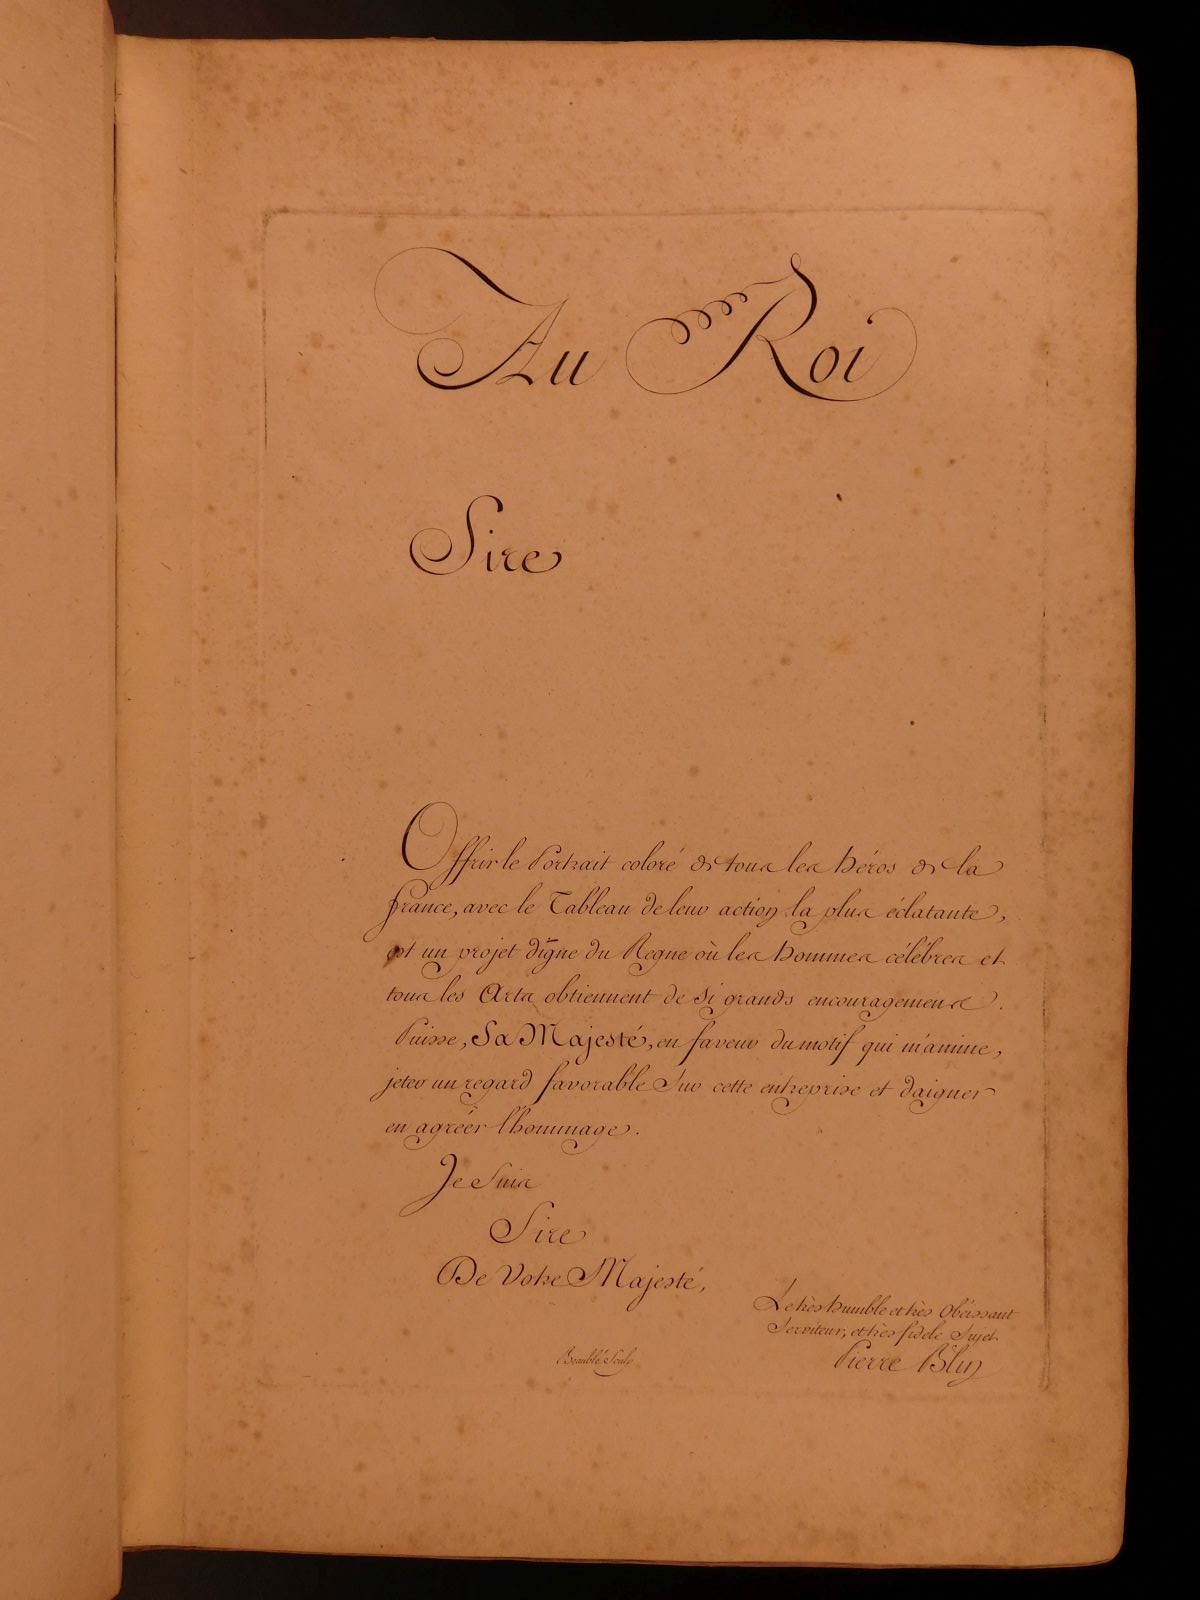 Au Roi
Sire
Offrir le Portrait coloré de tous les héros de la
france, avec le Tableau de leur action la plus éclatante,
est un projet digne du Regne où les hommes célébres et
tous les Arts obtiennent de si grands encouragemens.
Puisse, Sa Majesté, en faveur du motif qui m'anime,
jeter un regard favorable sur cette entreprise et daigner
en agréer l'hommage.
Je Suis
Sire
De Votre Majesté,
Le très humble et très Obéissant
Serviteur, et très fidele Sujet
Pierre Blin
Beaublé Sculp